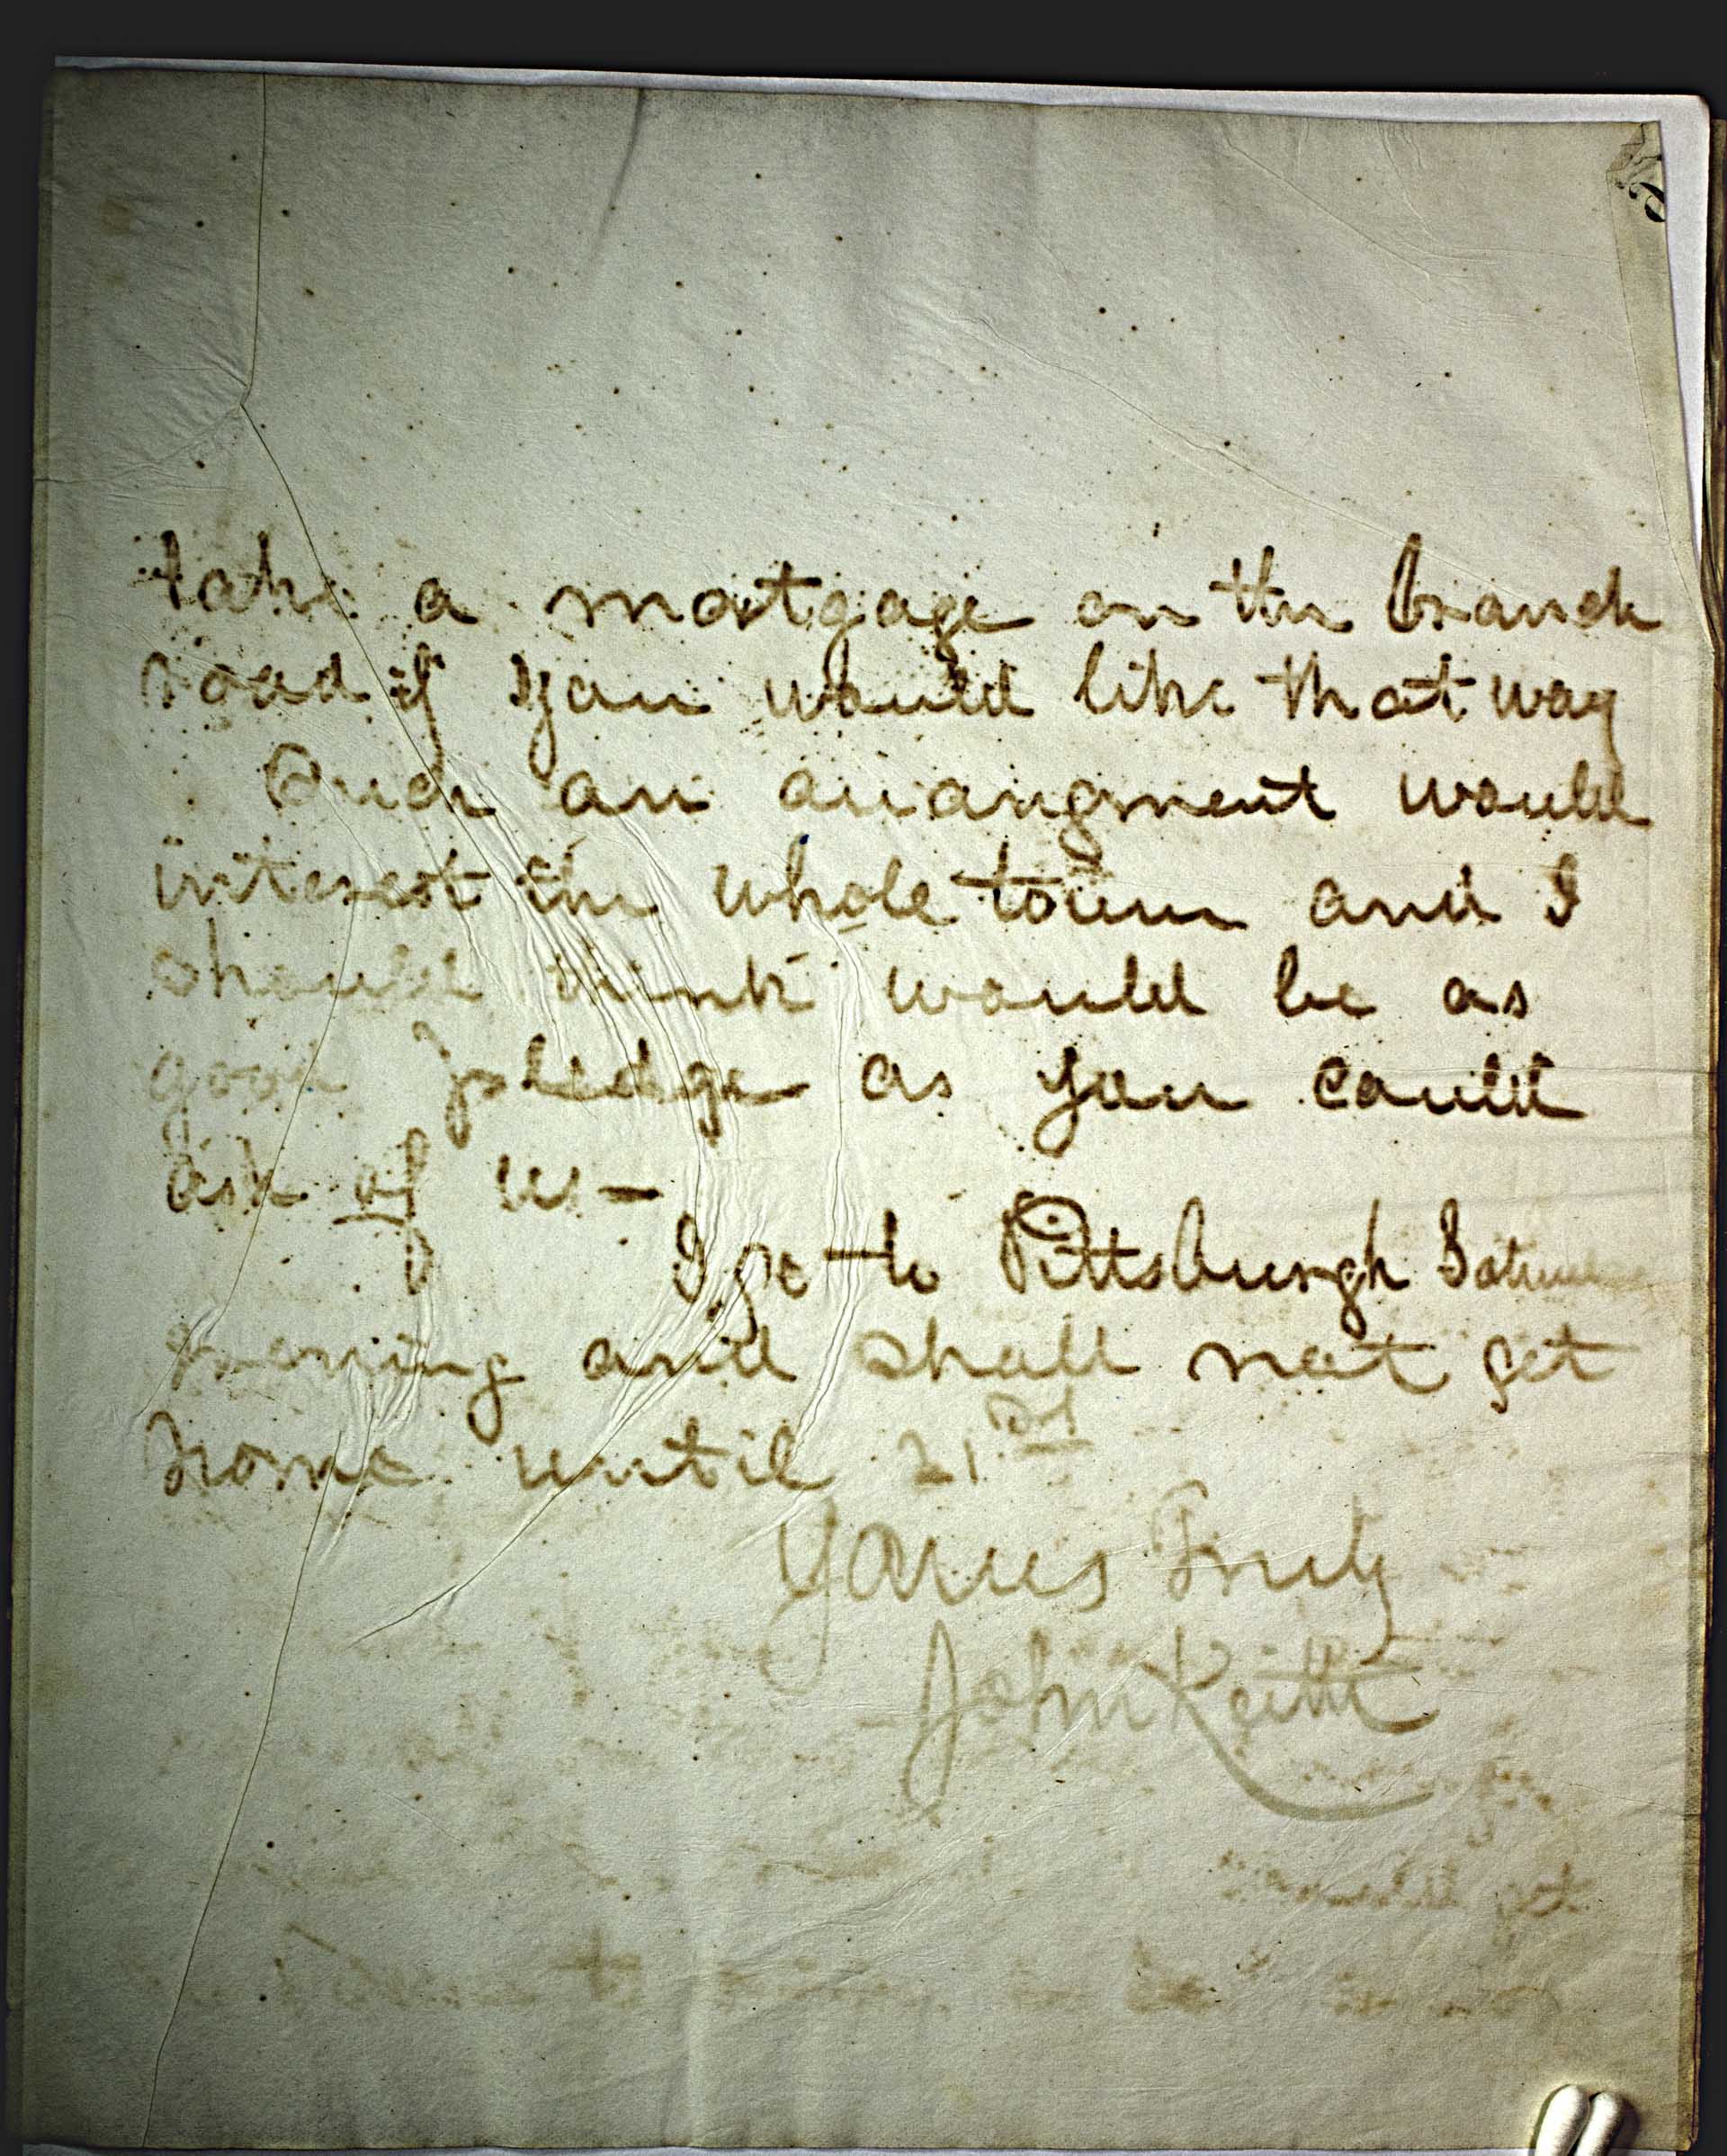 take a mortgage on the branch
road if you would like that way
Such an arrangment would
interest the whole town and I
should think would be as
good pledge as you could
ask of us —
I go to Pittsburgh
evening and shall not get
home until 21st
Yours Truly
John Keith